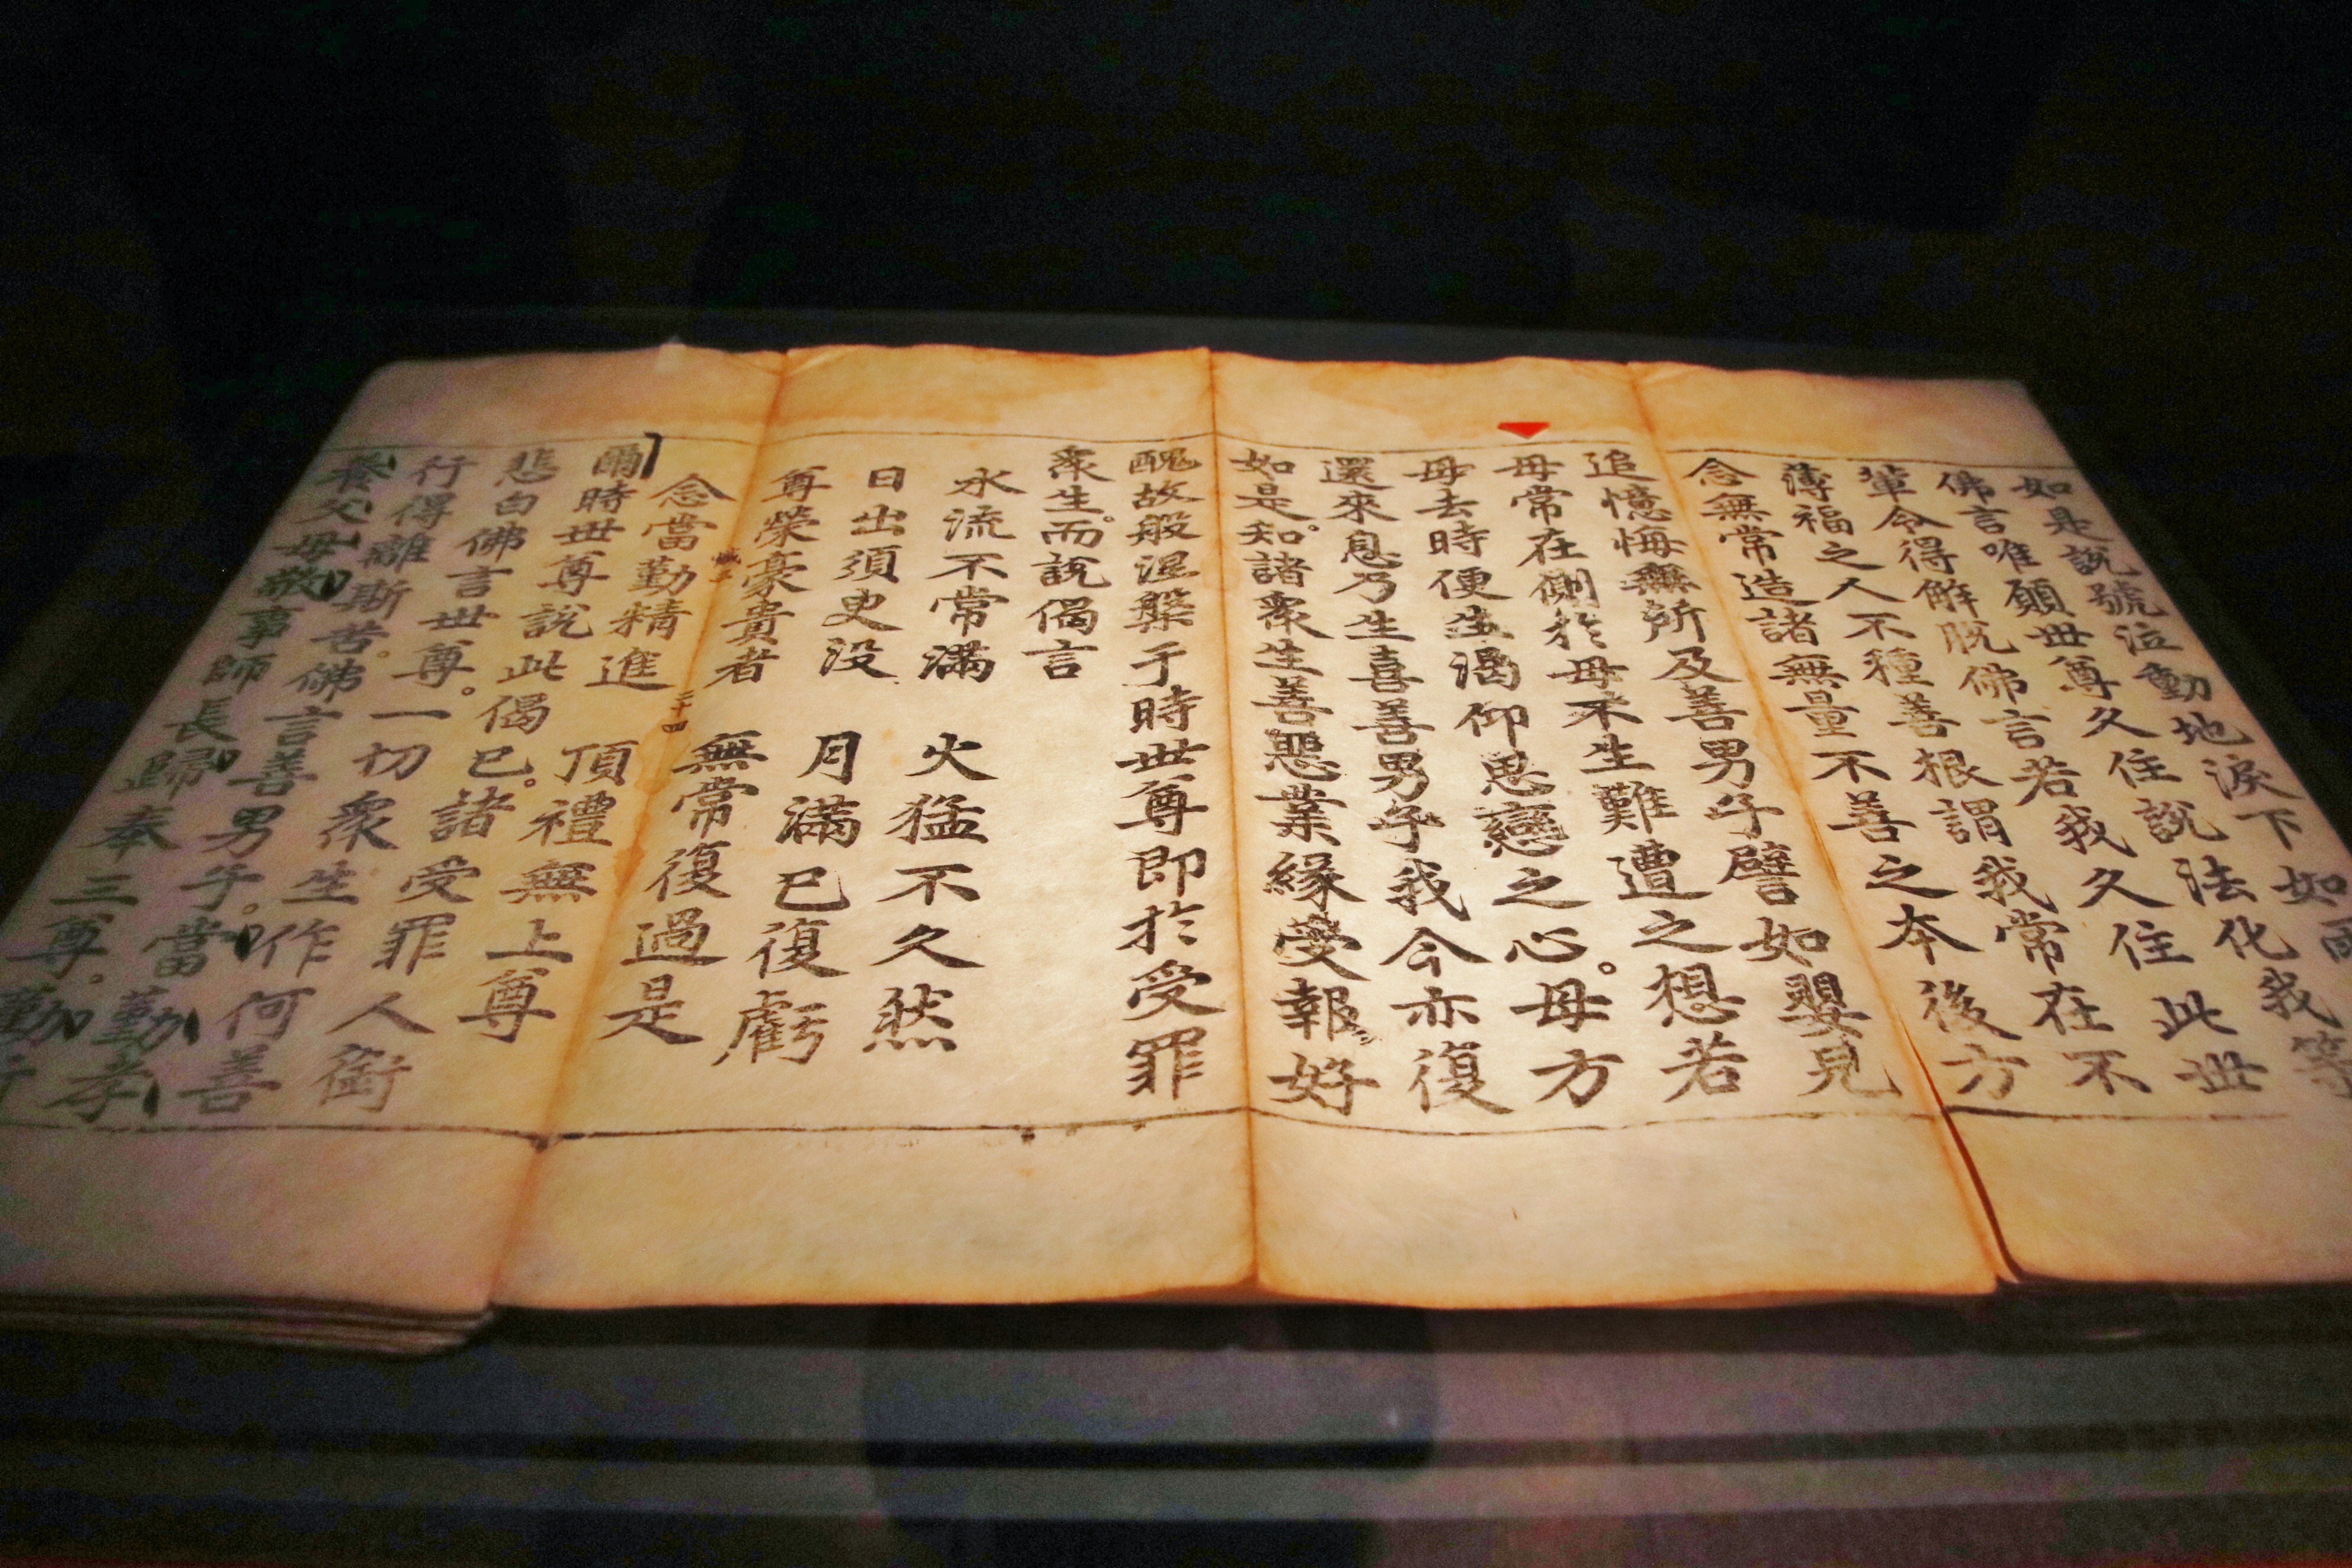 如是說號泣動地淚下如雨我等
佛言唯願世尊久住說法化此世
輩令得解脫佛言若我久住在不
薄福之人不種善根謂我常後方
念無常造諸無量不善之本
追憶悔無所及善男子譬如嬰兒
母常在側於母不生難遭之想若
母去時便生渴仰思戀之心母方
還來息乃生喜善男子我今亦復
如是知諸衆生善惡業緣受報好
醜故般涅槃于時世尊即於受罪
衆生而說偈言
水流不常滿 火猛不久然
日出須臾没 月滿已復虧
尊榮豪貴者 無常復過是
念當勤精進 頂禮無上尊
爾時世尊說此偈已諸受罪人銜
悲白佛言世尊一切衆生作何善
行得離斯苦佛言善男子當勤孝
養父母敬事師長歸奉三尊勤行